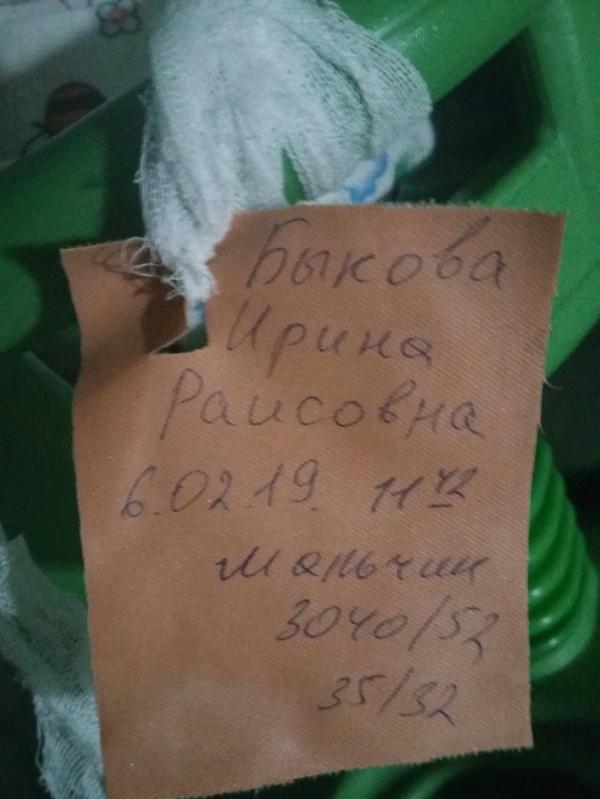 Быкова
Ирина
Раисовна
6.02.19. 11 42
мальчик
3040/52
35/32